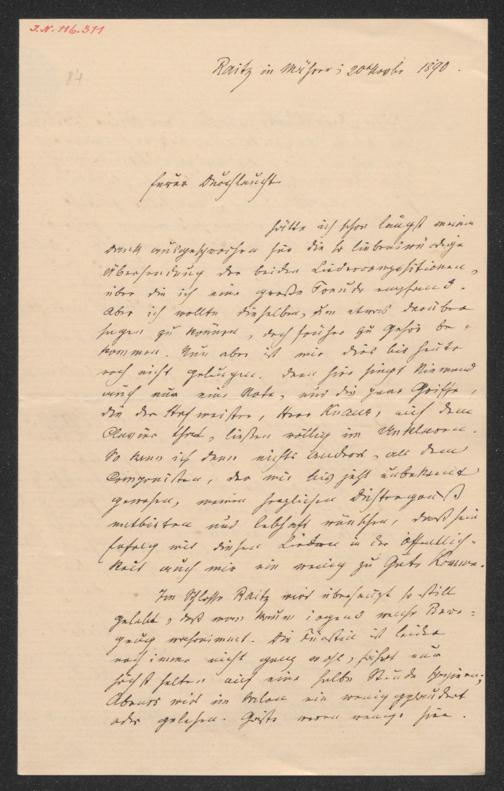 J.N. 116.311
84
Raitz in Mähren; 20t Novbr 1890.
Euere Durchlaucht
hätte ich schon längst meinen
Dank ausgesprochen für die so liebenswürdige
Übersendung der beiden Liedercompositionen,
über die ich eine große Freude empfand.
Aber ich wollte dieselben, um etwas darüber
sagen zu können, doch früher zu Gehör be-
kommen. Nun aber ist mir dies bis heute
noch nicht gelungen. Denn hier singt Niemand
auch nur eine Note, und die paar Griffe,
die der Hofmeister, Herr Knauer, auf dem
Clavier that, ließen völlig im Unklaren.
So kann ich denn nichts anderes, als dem
Componisten, der mir bis jetzt unbekannt
gewesen, meinen herzlichen Dichtergruß
entbieten und lebhaft wünschen, daß sein
Erfolg mit diesen Liedern in der Öffentlich-
keit auch mir ein wenig zu Gute komme.
Im Schlosse Raitz wird überhaupt so still
gelebt, daß man kaum irgend welche Bewe-
gung wahrnimmt. Die Fürstin ist leider
noch immer nicht ganz wohl, fährt nur
höchst selten auf eine halbe Stunde spazieren;
Abends wird im Salon ein wenig geplaudert
oder gelesen. Gäste waren wenige hier.